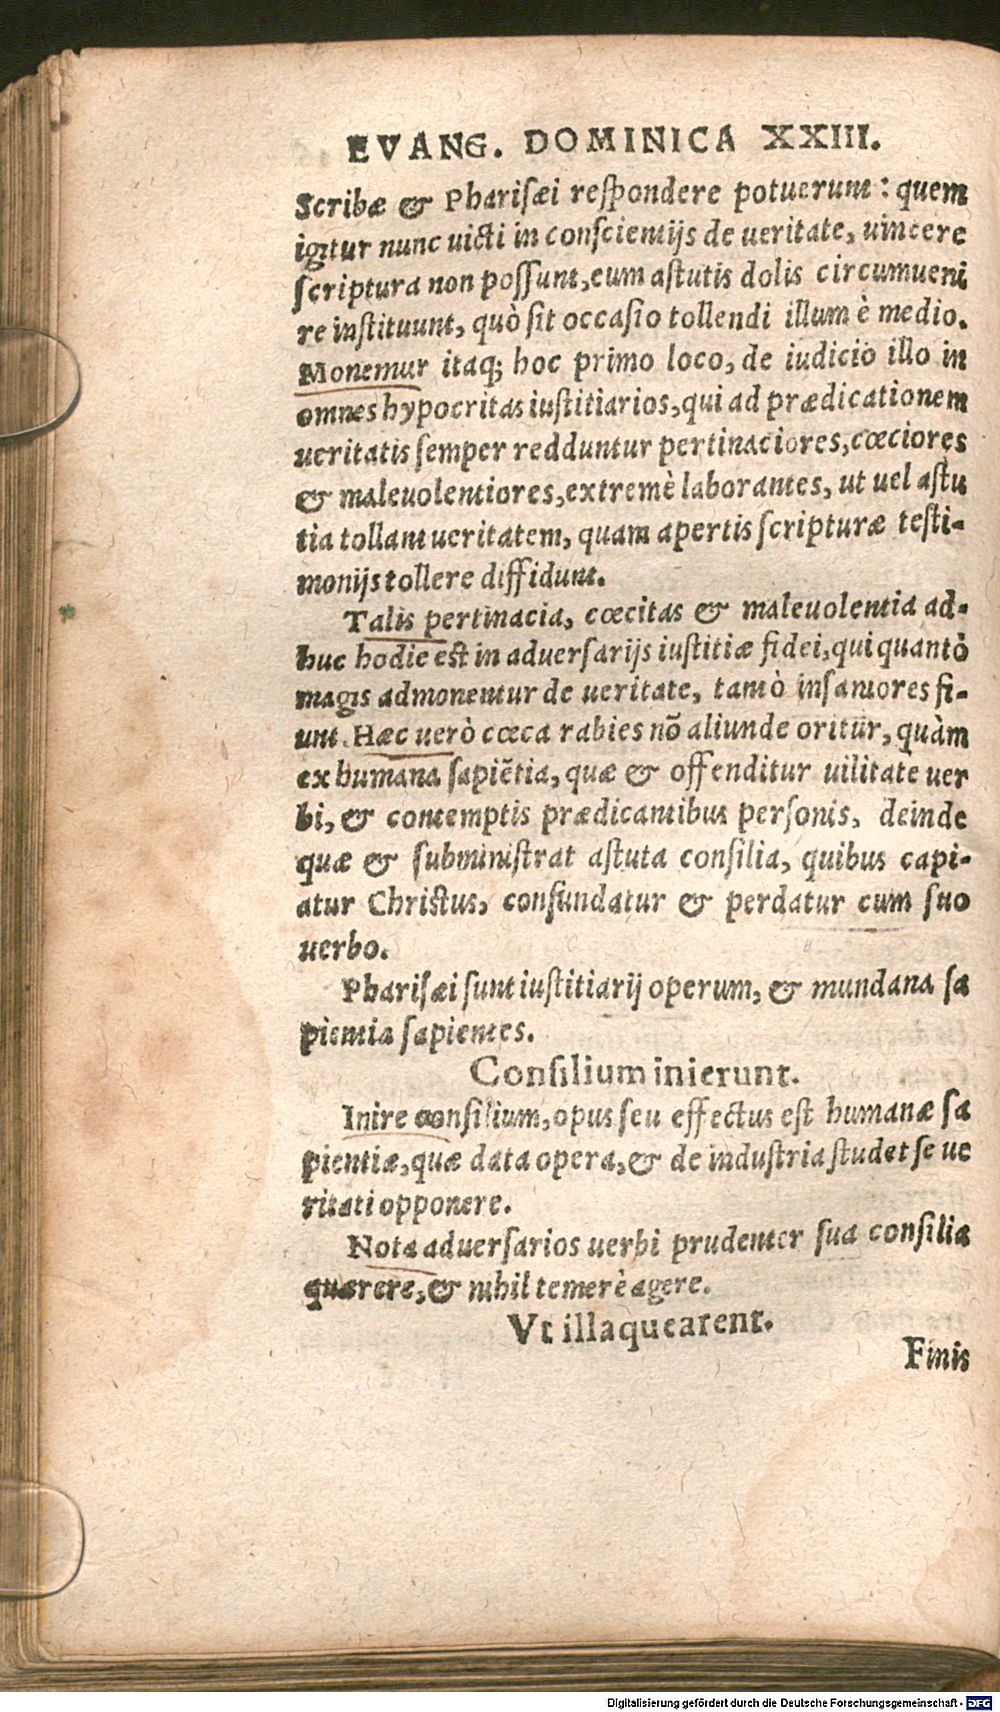 EVANG. DOMINICA XXIII.
Scribæ & Pharisæi respondere potuerunt: quem
igitur nunc uicti in conscientijs de ueritate, uincere
scriptura non possunt, eum astutis dolis circumueni
re instituunt, quò sit occasio tollendi illum è medio.
Monemur itaq; hoc primo loco, de iudicio illo in
omnes hypocritas iustitiarios, qui ad prædicationem
ueritatis semper redduntur pertinaciores, cœciores
& maleuolentiores, extremè laborantes, ut uel astu
tia tollant ueritatem, quam apertis scripturæ testi-
monijs tollere diffidunt.
Talis pertinacia, cœcitas & maleuolentia ad-
huc hodie est in aduersarijs iustitiæ fidei, qui quantò
magis admonentur de ueritate, tantò insaniores fi-
unt. Hæc uerò cœca rabies nõ aliunde oritur, quàm
ex humana sapiẽtia, quæ & offenditur uilitate uer
bi, & contemptis prædicantibus personis, deinde
quæ & subministrat astuta consilia, quibus capi-
atur Christus, confundatur & perdatur cum suo
uerbo.
Pharisæi sunt iustitiarij operum, & mundana sa
pientia sapientes.
Consilium inierunt.
Inire consilium, opus seu effectus est humanæ sa
pientiæ, quæ data opera, & de industria studet se ue
ritati opponere.
Nota aduersarios uerbi prudenter sua consilia
quærere, & nihil temerè agere.
Vt illaquearent.
Finis
Digitalisierung gefördert durch die Deutsche Forschungsgemeinschaft - DFG